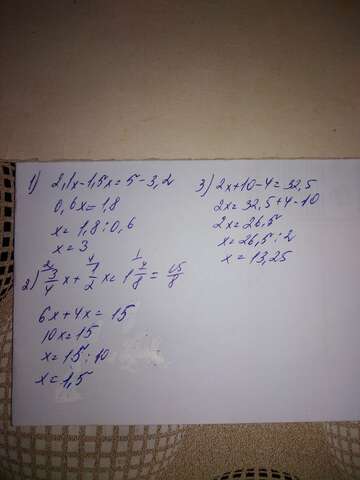 1) 2,1x-1,5x=5-3,2
0,6x=1,8
x=1,8:0,6
x=3
2) 3/4 x + 1/2 x = 1 7/8 = 15/8
6x+4x=15
10x=15
x=15:10
x=1,5
3) 2x+10-4=32,5
2x=32,5+4-10
2x=26,5
x=26,5:2
x=13,25